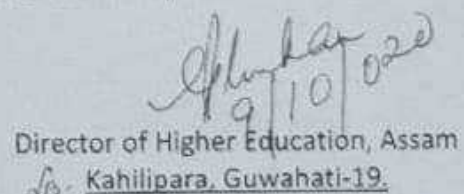 9/10/020
Director of Higher Education, Assam
Kahilipara, Guwahati-19.